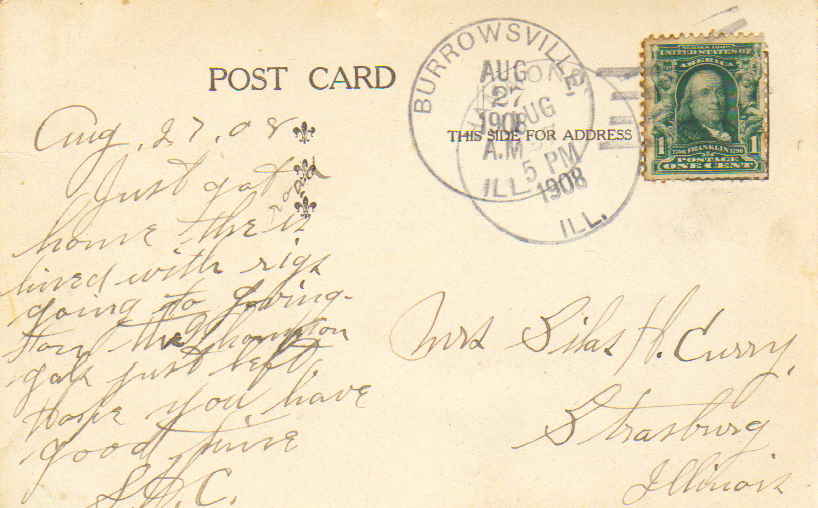 POST CARD
THIS SIDE FOR ADDRESS
BURROWSVILLE
AUG
27
1908
A.M.
ILL.
AUG
5 PM
1908
ILL.
SERIES 1902
UNITED STATES OF
AMERICA
1 FRANKLIN 1
POSTAGE
ONE CENT
Aug. 27. 08
Just got
home
with rigs
going to Loving-
ton the Thompson
gals just left,
hope you have
good time
S.H.C.
Mrs Silas H. Curry,
Strasburg
Illinois